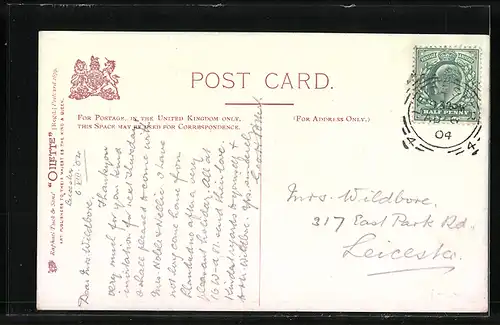 POST CARD.
FOR POSTAGE, IN THE UNITED KINGDOM ONLY,
THIS SPACE MAY BE USED FOR CORRESPONDENCE.
(FOR ADDRESS ONLY.)
HALF PENNY
04
Mrs. Wildbore.
217 East Park Rd.
Leicester.
Raphael Tuck & Sons' "OILETTE" [Regd.] Postcard
ART PUBLISHERS TO THEIR MAJESTIES THE KING & QUEEN.
Leicester
Dear Mrs Wildbore,
Thank you
very much for your kind
invitation for next Thursday
I shall be pleased to come with
Mrs Noble. Nellie & I have
not long come home from
Llandudno after a very
pleasant holiday. All at
send their love.
Kindest regards to yourself &
Mr Wildbore. Yrs sincerely